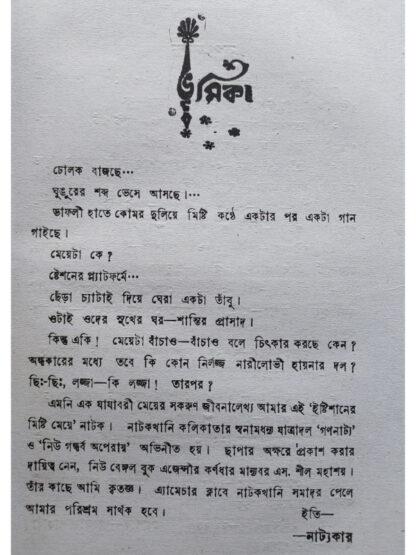 ভূমিকা
ঢোলক বাজছে···
ঘুঙুরের শব্দ ভেসে আসছে।···
ডাফলী হাতে কোমর দুলিয়ে মিষ্টি কণ্ঠে একটার পর একটা গান
গাইছে।
মেয়েটা কে ?
ষ্টেশনের প্ল্যাটফর্মে···
ছেঁড়া চ্যাটাই দিয়ে ঘেরা একটা তাঁবু।
ওটাই ওদের সুখের ঘর—শান্তির প্রাসাদ।
কিন্তু একি ! মেয়েটা বাঁচাও—বাঁচাও বলে চিৎকার করছে কেন ?
অন্ধকারের মধ্যে তবে কি কোন নির্লজ্জ নারীলোভী হায়নার দল ?
ছিঃ-ছিঃ, লজ্জা—কি লজ্জা ! তারপর ?
এমনি এক যাযাবরী মেয়ের সকরুণ জীবনালেখ্য আমার এই ‘ইষ্টিশানের
মিষ্টি মেয়ে’ নাটক। নাটকখানি কলিকাতার স্বনামধন্য যাত্রাদল ‘গণনাট্য’
ও ‘নিউ গন্ধর্ব অপেরায়’ অভিনীত হয়। ছাপার অক্ষরে প্রকাশ করার
দায়িত্ব নেন, নিউ বেঙ্গল বুক এজেন্সীর কর্ণধার মান্যবর এস. শীল মহাশয়।
তাঁর কাছে আমি কৃতজ্ঞ। এ্যামেচার ক্লাবে নাটকখানি সমাদর পেলে
আমার পরিশ্রম সার্থক হবে। ইতি—
—নাট্যকার